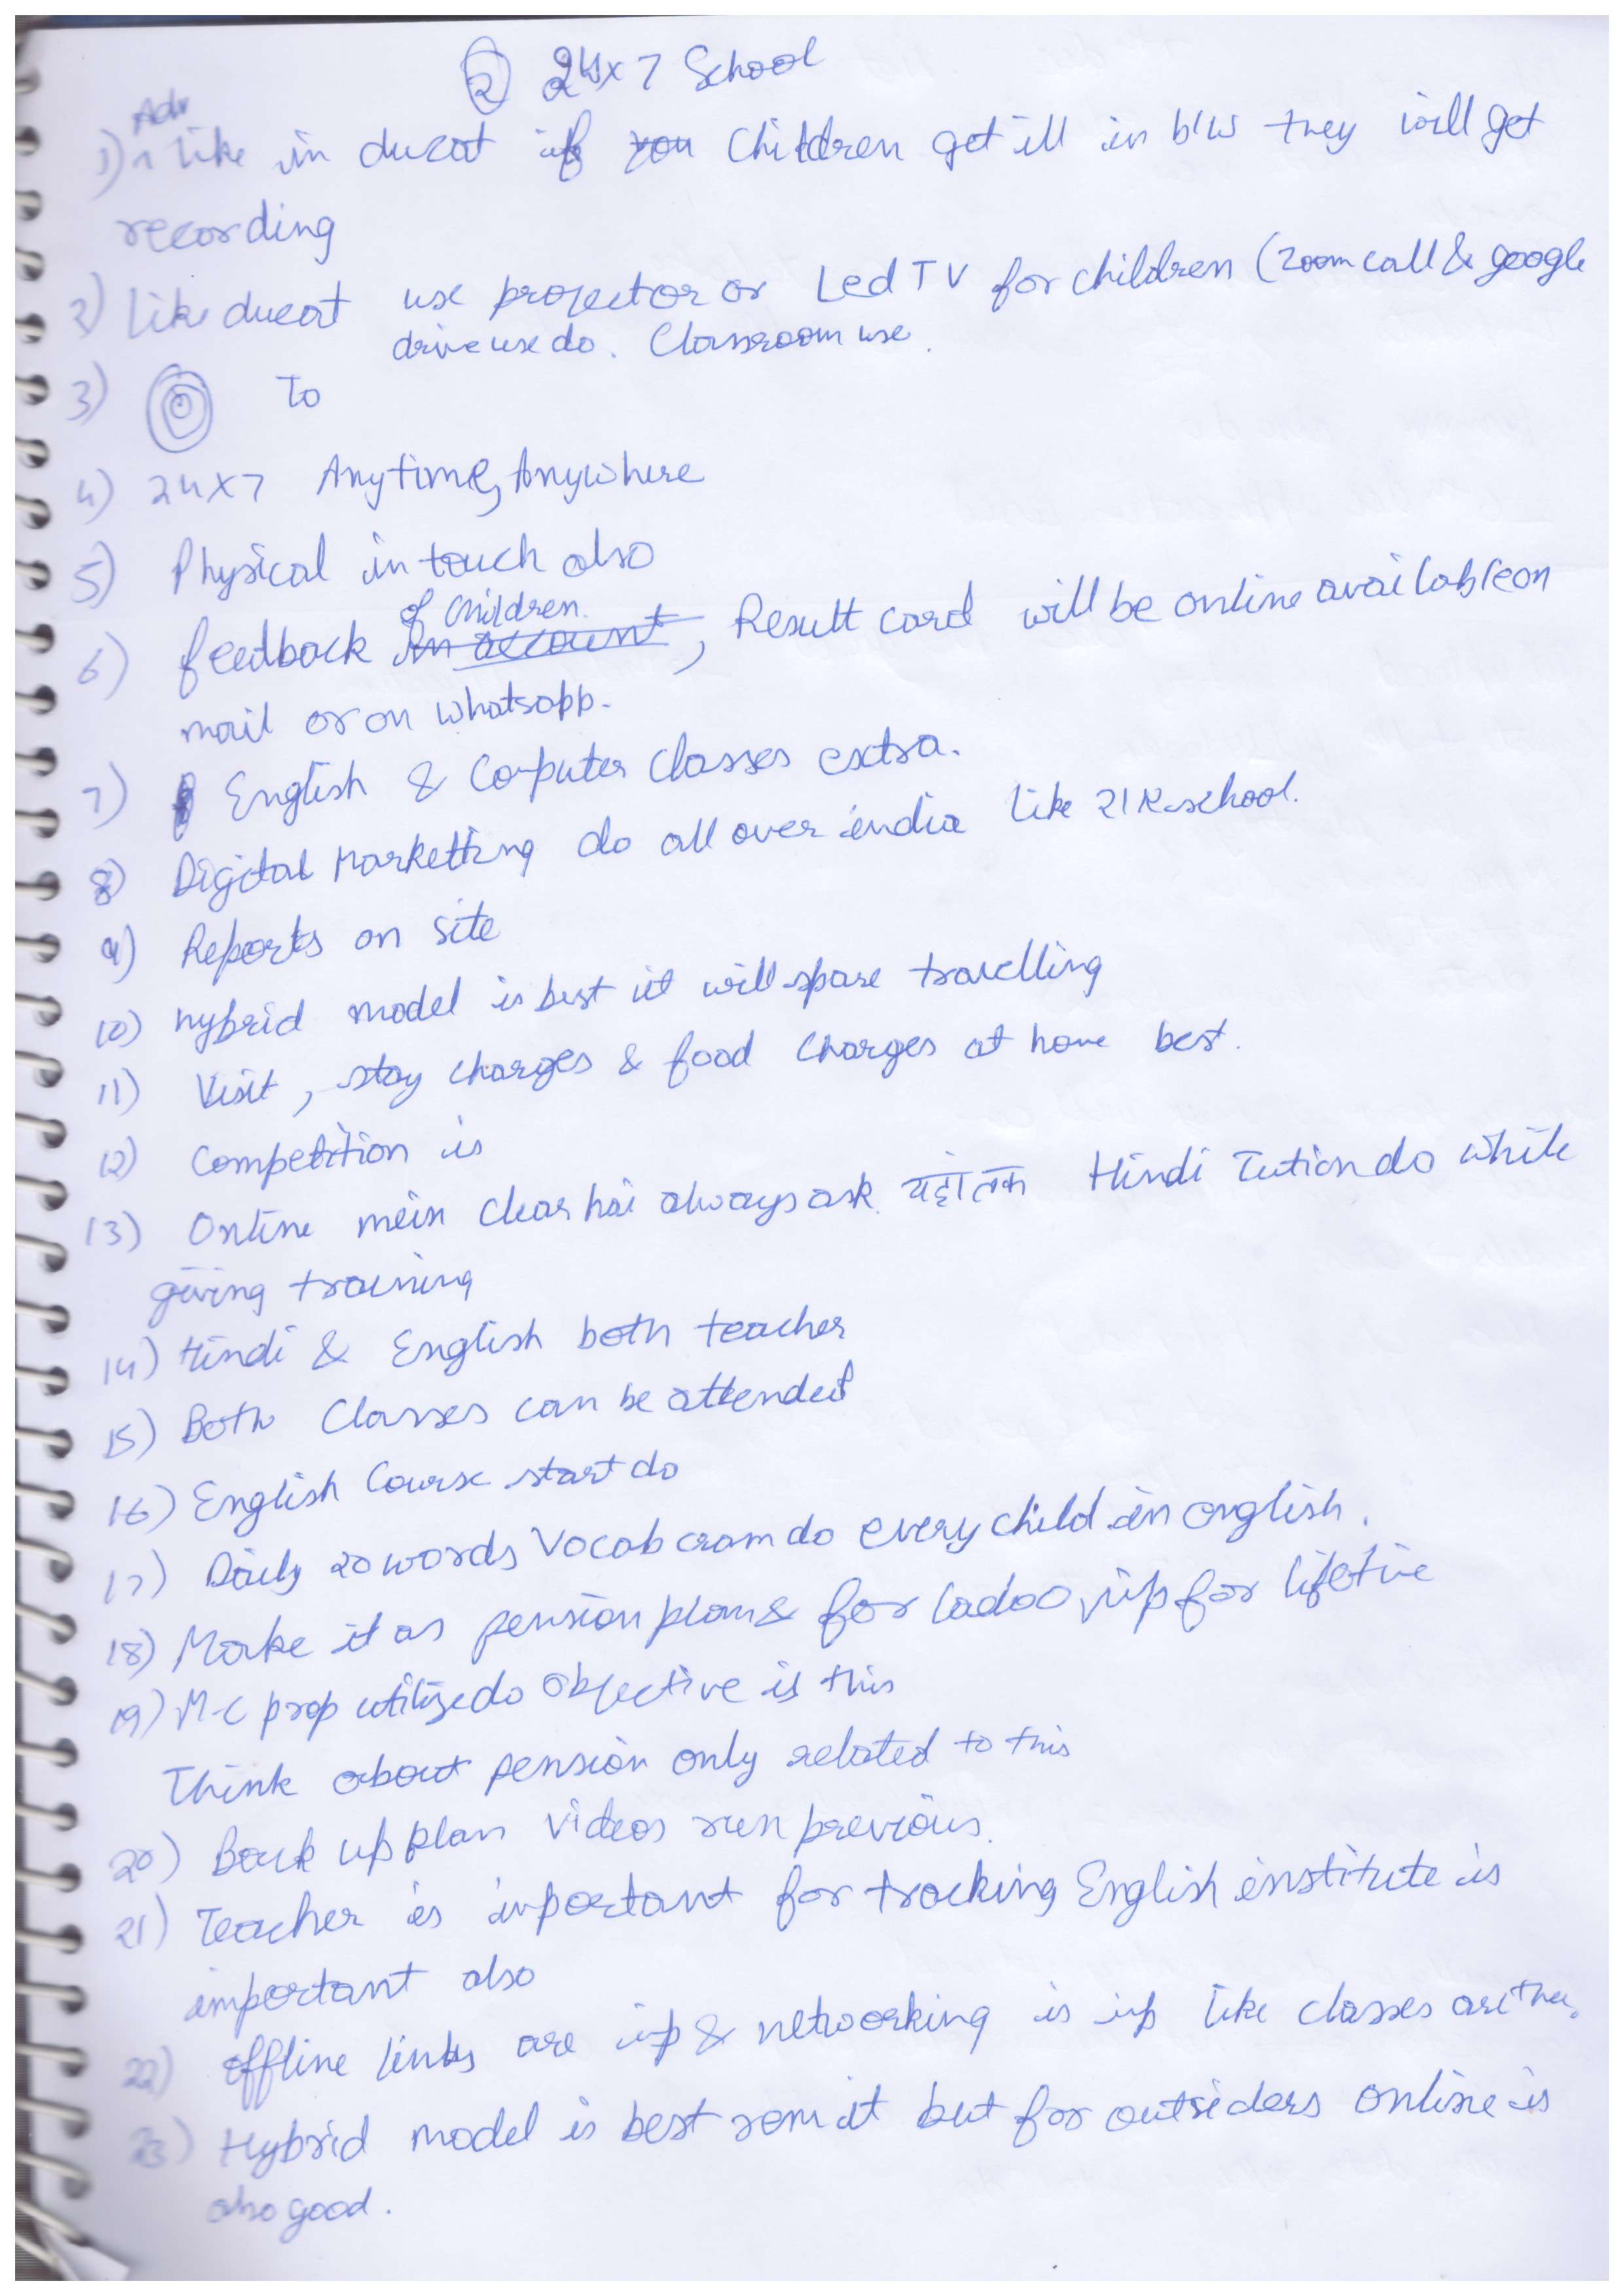 ② 24x7 School
Adv
1) Like in ducat if you Children get ill in b/w they will get
recording
2) Like ducat use projector or Led TV for children (Zoom call & google
drive use do. Classroom use.
3) To
4) 24x7 Anytime, Anywhere
5) Physical in touch also
of Children.
6) feedback in account, Result card will be online available on
mail or on whatsapp.
7) English & Computer Classes extra.
8) Digital Marketting do all over india like 21K school.
9) Reports on site
10) hybrid model is best it will spare travelling
11) Visit, stay charges & food charges at home best.
12) Competition is
13) Online mein clear hai always ask यहां तक Hindi Tution do while
giving training
14) Hindi & English both teacher
15) Both Classes can be attended
16) English Course start do
17) Daily 20 words Vocab cram do every child in english.
18) Make it as pension plan & for ladoo for lifetime
19) M-C prop utilize do objective is this
Think about pension only related to this
20) Back up plan videos run previous.
21) Teacher is important for tracking English institute is
important also
22) offline links are imp & networking is imp like classes are
23) Hybrid model is best it but for outsiders online is
also good.